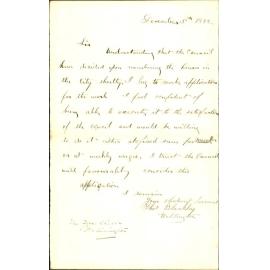 December 5th 1882
Sir
Understanding that the Council
have decided upon numbering the houses in
the city shortly, I beg to make application
for the work. I feel confident of
being able to execute it to the satisfaction
of the council and would be willing
to do it either at a fixed sum
or at weekly wages. I trust the Council
will favourably consider this
application
I remain
Your obedient servant
Wellington
The Town Clerk
Wellington